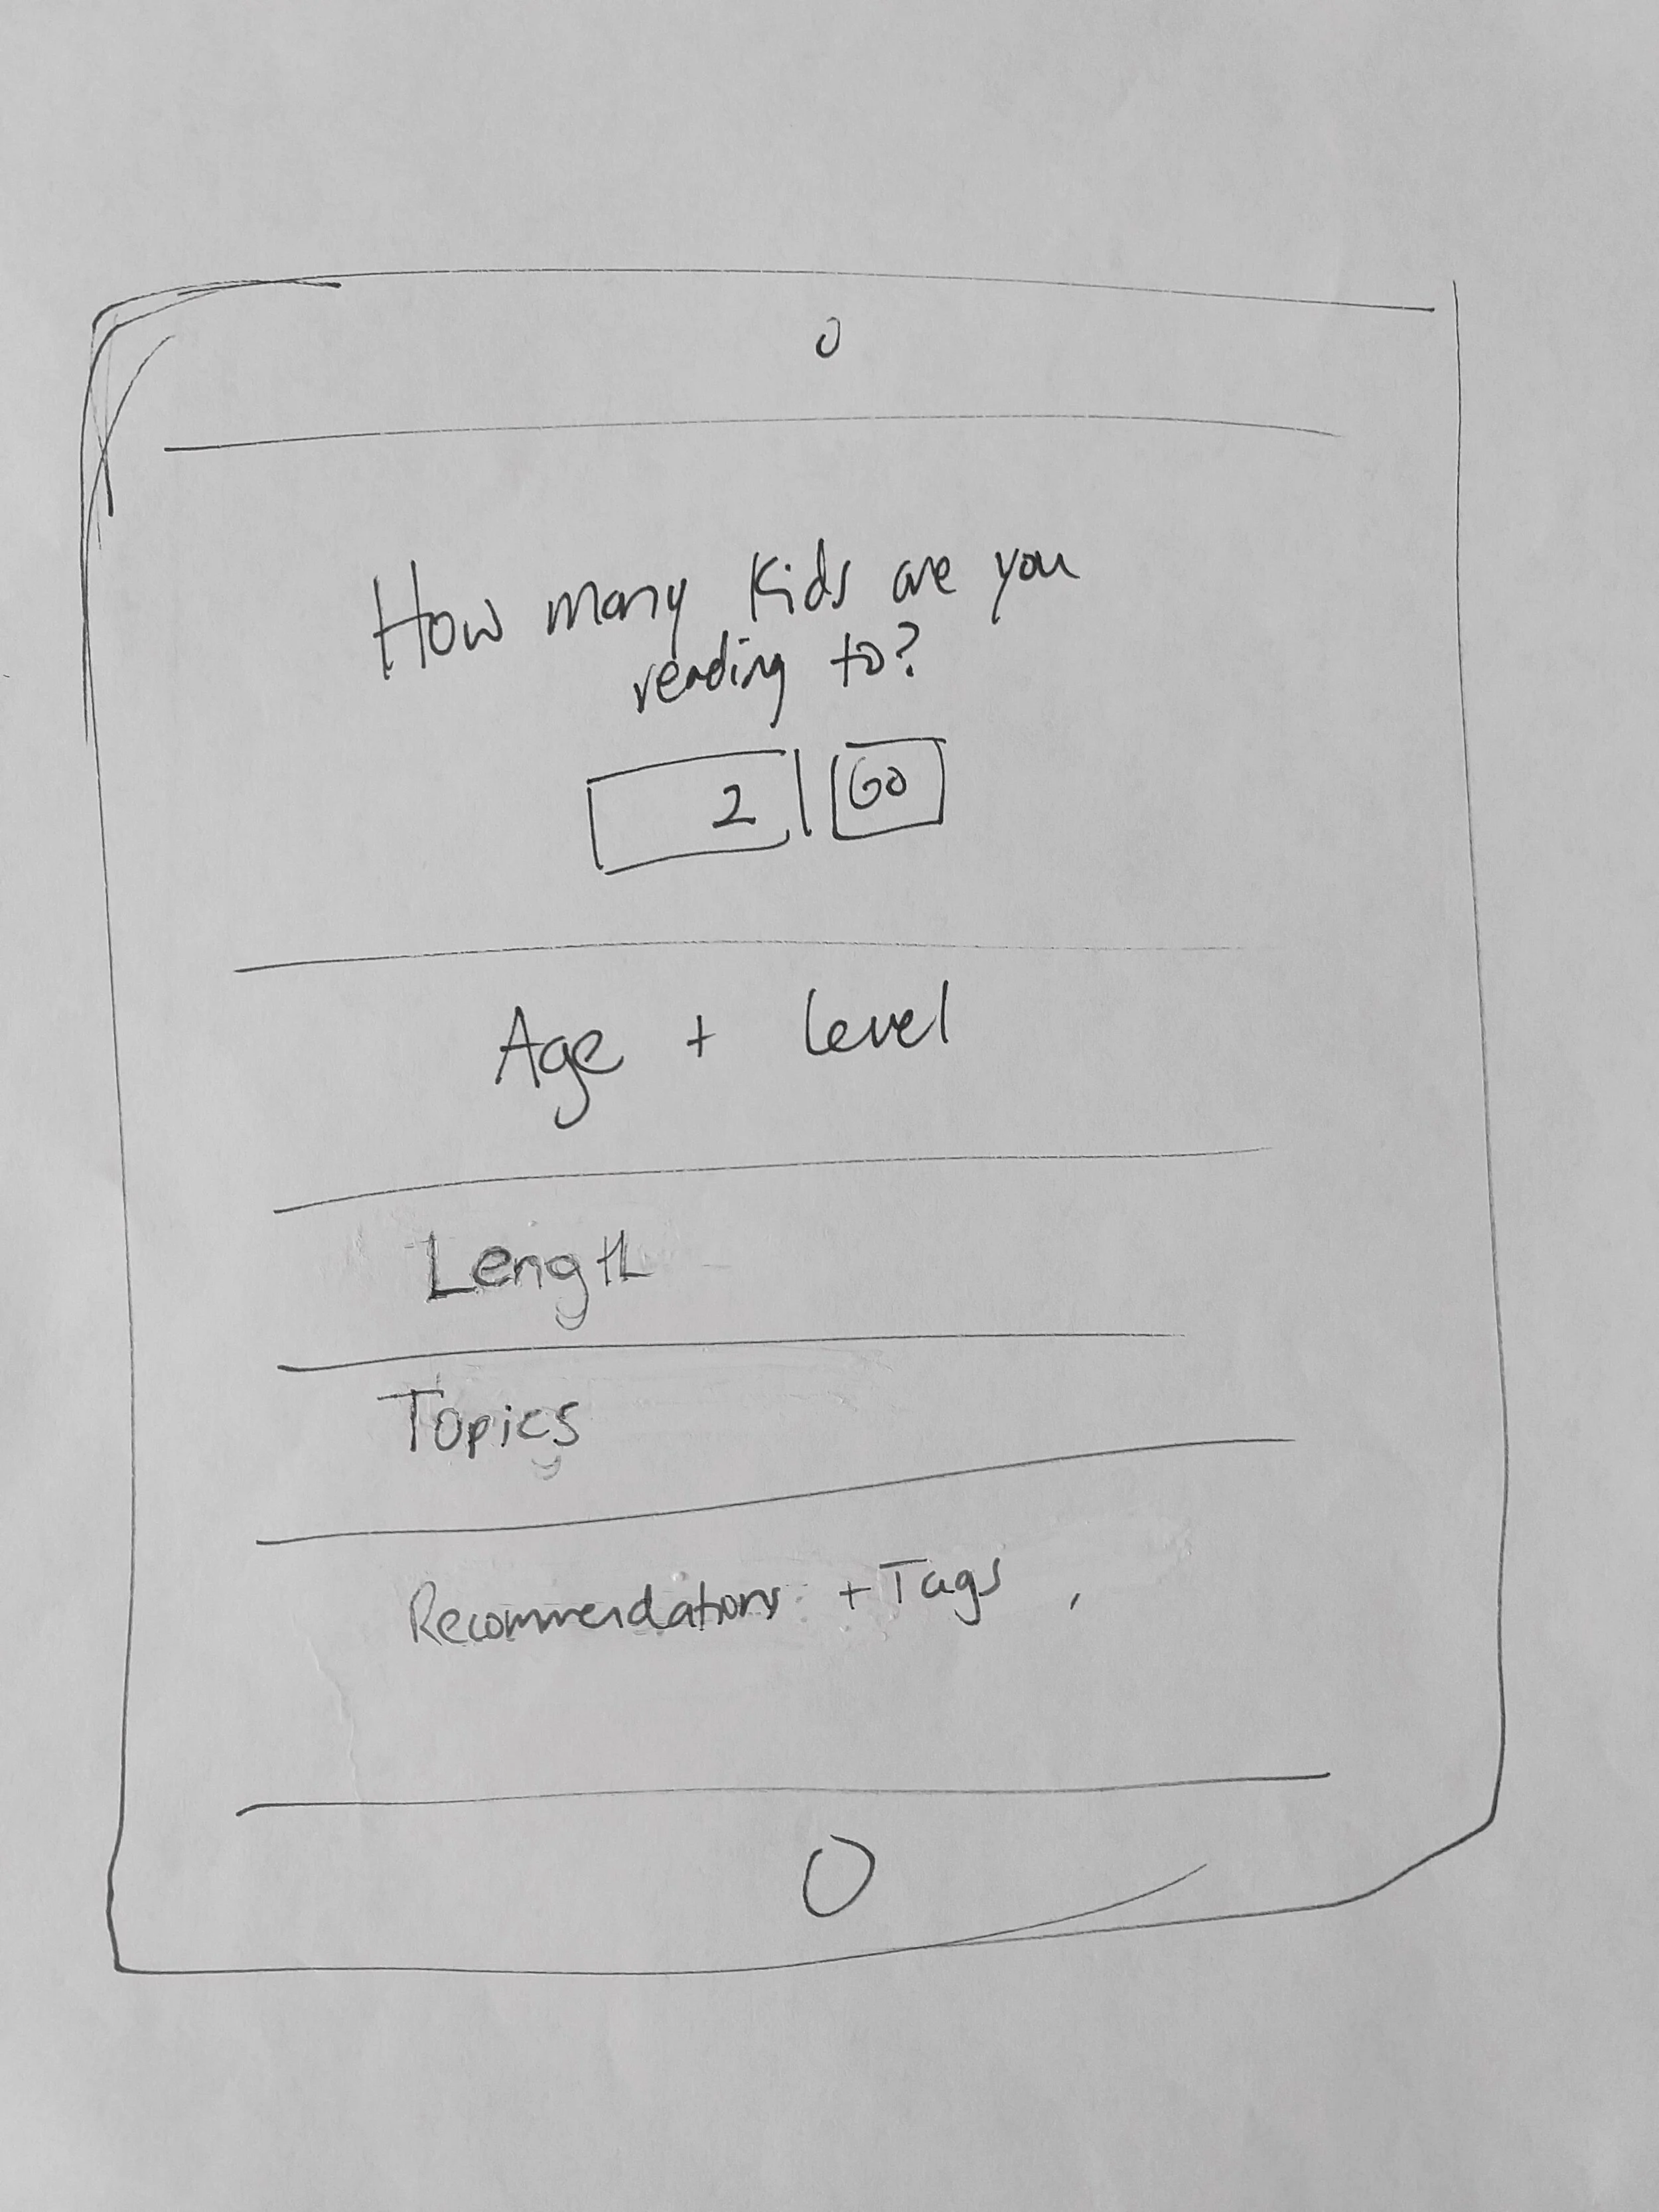 How many Kids are you
reading to?
2 Go
Age + Level
Length
Topics
Recommendations + Tags